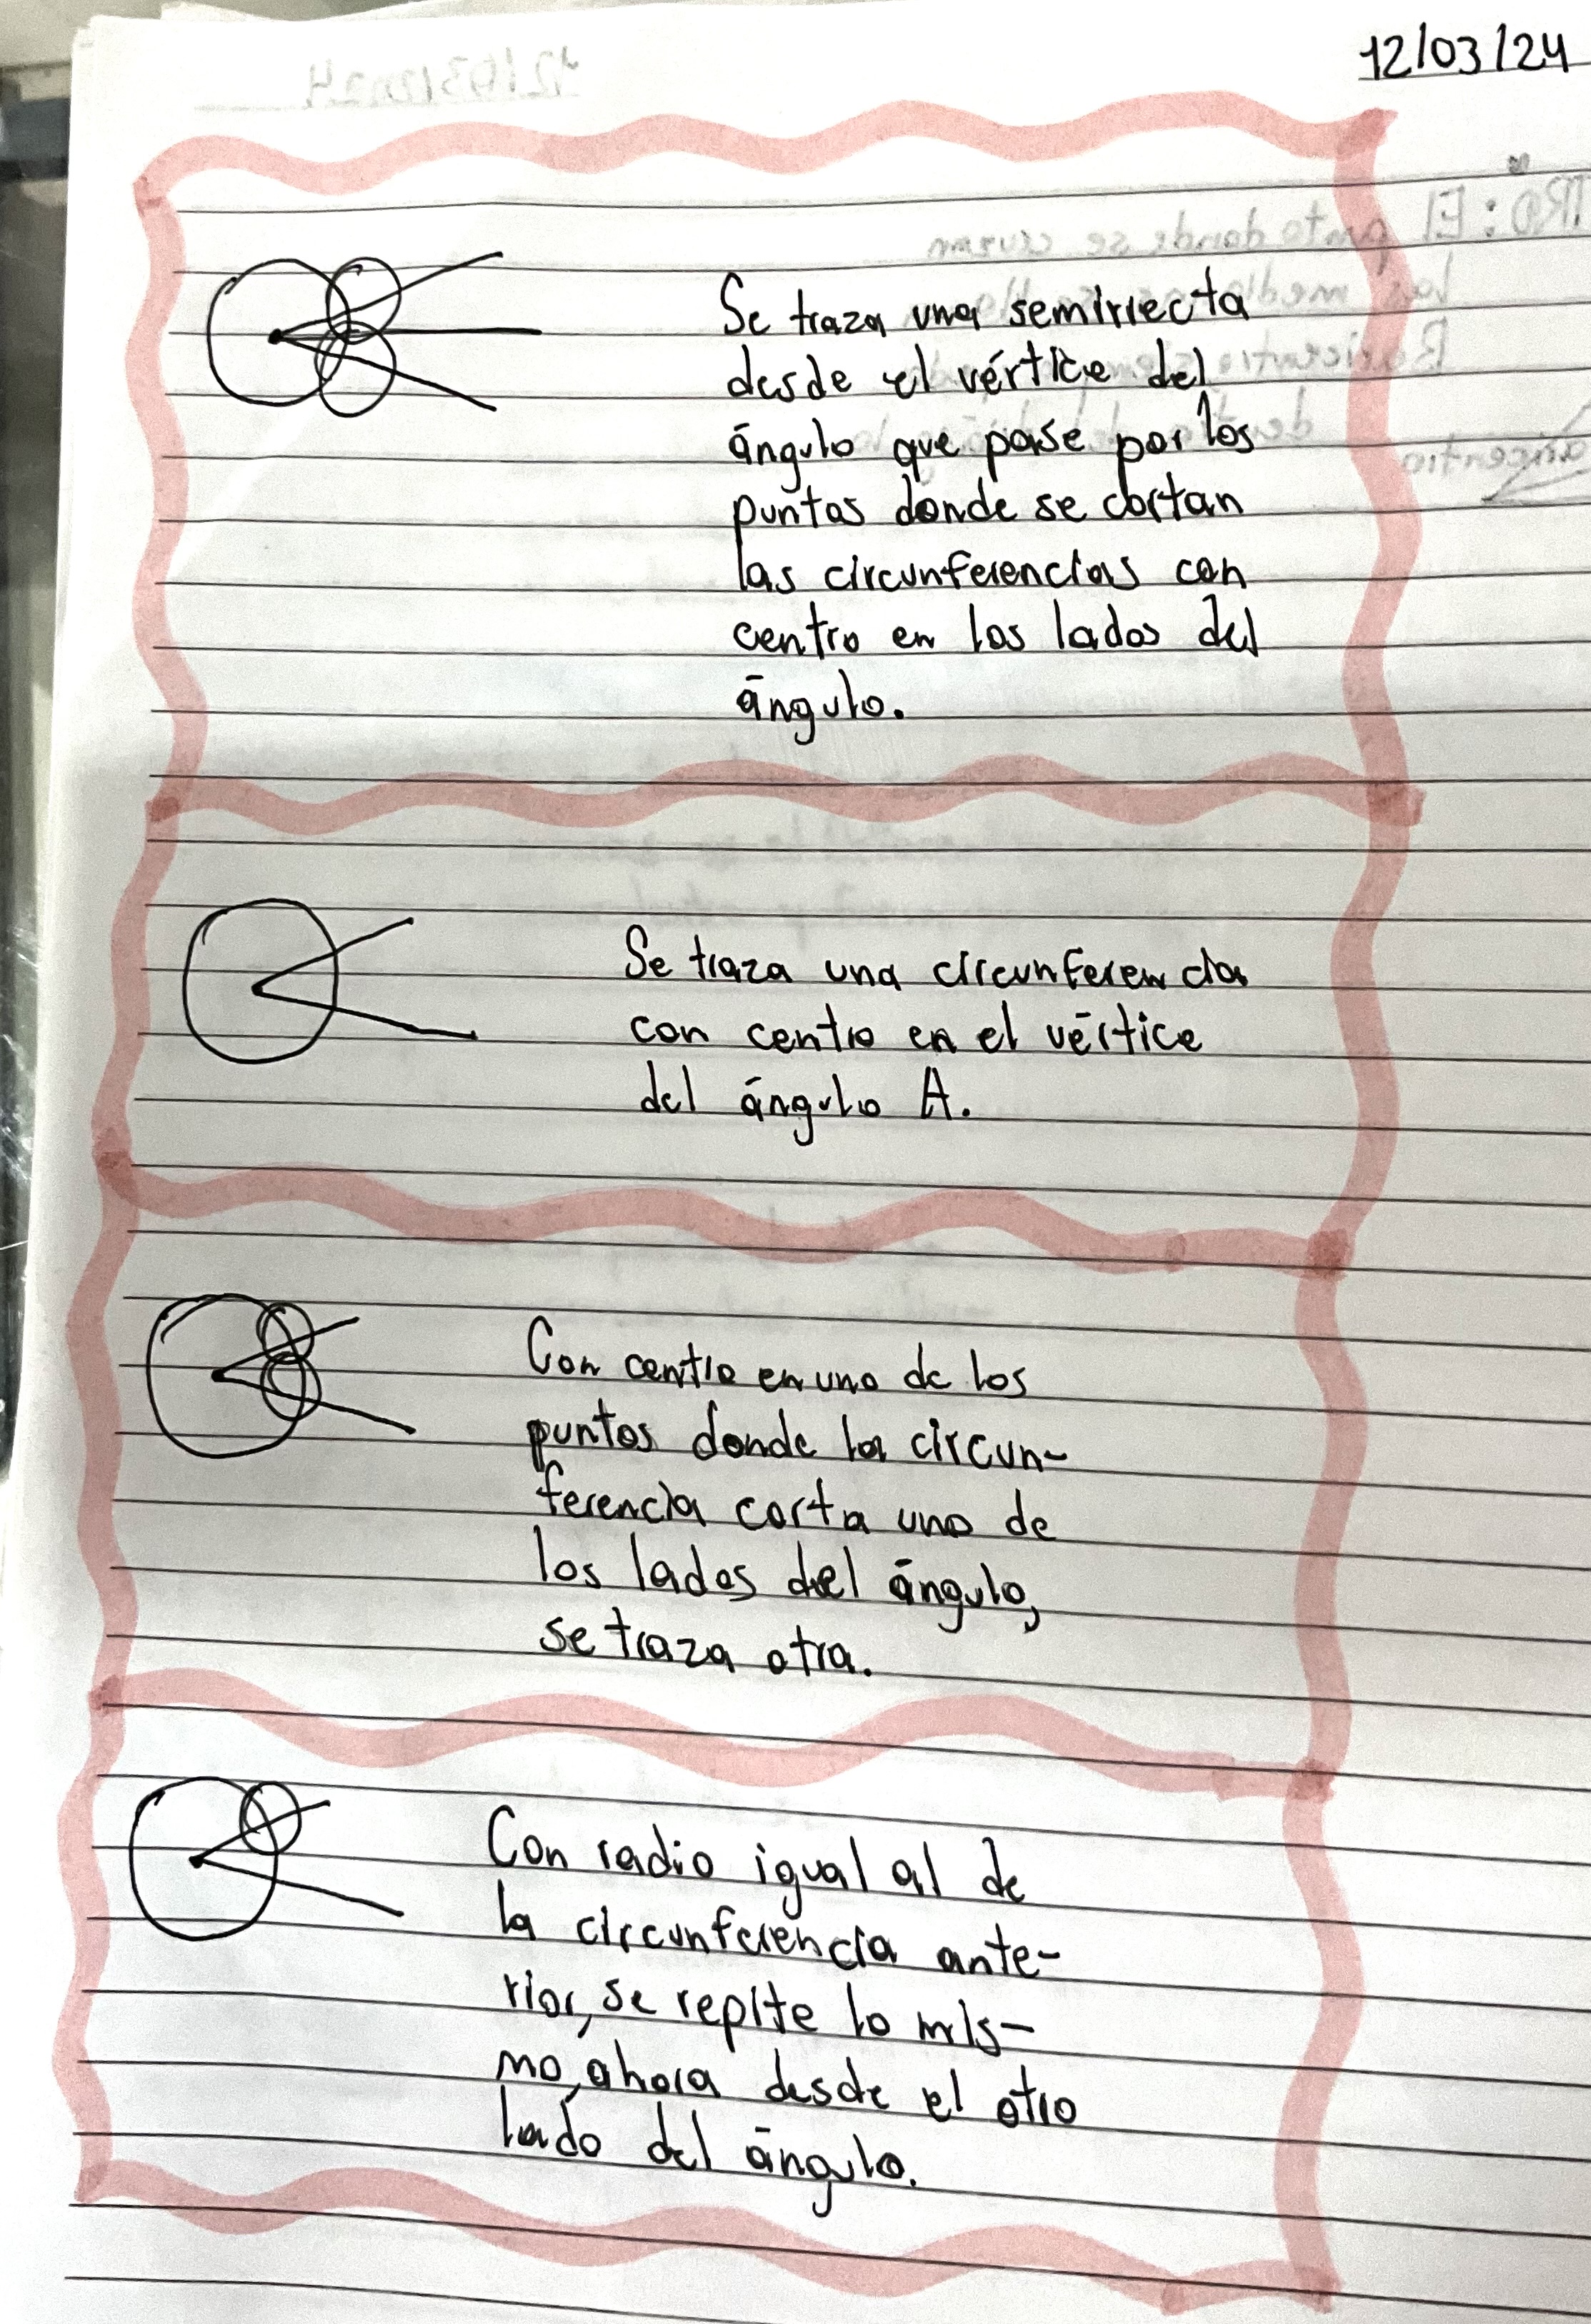 12/03/24
Se traza una semirrecta
desde el vértice del
ángulo que pase por los
puntos donde se cortan
las circunferencias con
centro en los lados del
ángulo.
Se traza una circunferencia
con centro en el vértice
del ángulo A.
Con centro en uno de los
puntos donde la circun-
ferencia corta uno de
los lados del ángulo,
se traza otra.
Con radio igual al de
la circunferencia ante-
rior, se repite lo mis-
mo, ahora desde el otro
lado del ángulo.